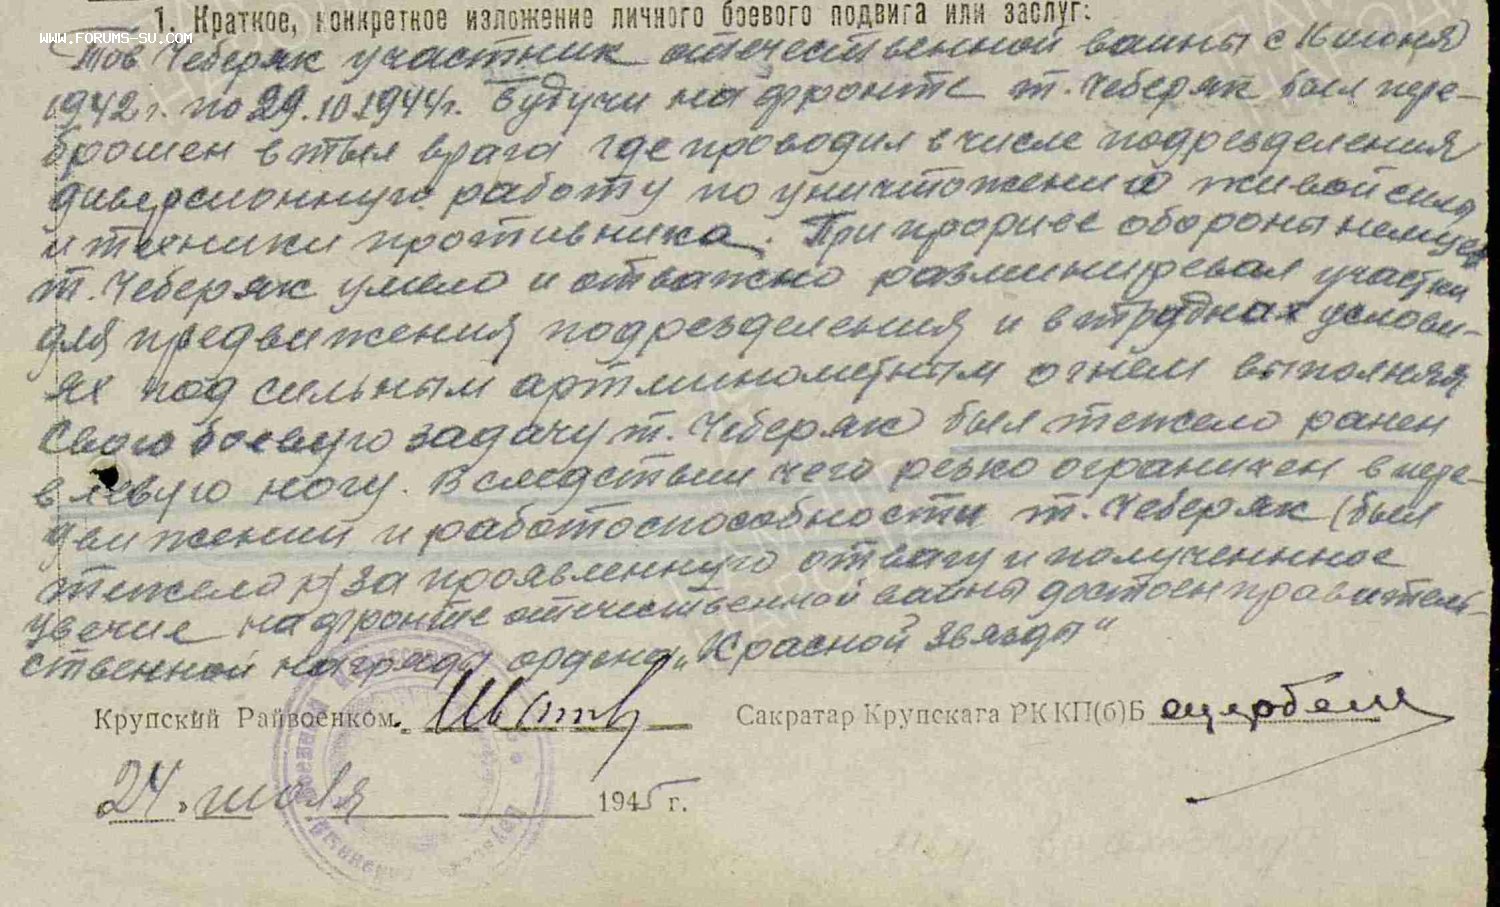 1. Краткое, конкретное изложение личного боевого подвига или заслуг:
WWW.FORUMS-SU.COM
Тов Чеберяк участник отечественной ваины с 16 июня
1942 г. по 29.10.1944 г. Будучи на фронте т. Чеберяк был пере-
брошен в тыл врага где проводил в числе подрезделения
диверсионную работу по уничтожению живой силы
и техники противника. При прориве обороны немцев
т. Чеберяк умело и отважно разминировал участки
для предвижения подрезделения и в трудных услови-
ях под сильным артминометным огнем выполняя
свою боевую задачу т. Чеберяк был тежело ранен
в левую ногу. Вследствии чего резко ограничен в пере-
движении и работоспособности т. Чеберяк (был
тежело р) за проявленную отвагу и полученное
увечие на фронте отечественной ваины достоен правитель-
ственной награды ордена „Красной Звязды"
Крупский Райвоенком. Сакратар Крупскага РК КП(б)Б
24 июля 1945 г.